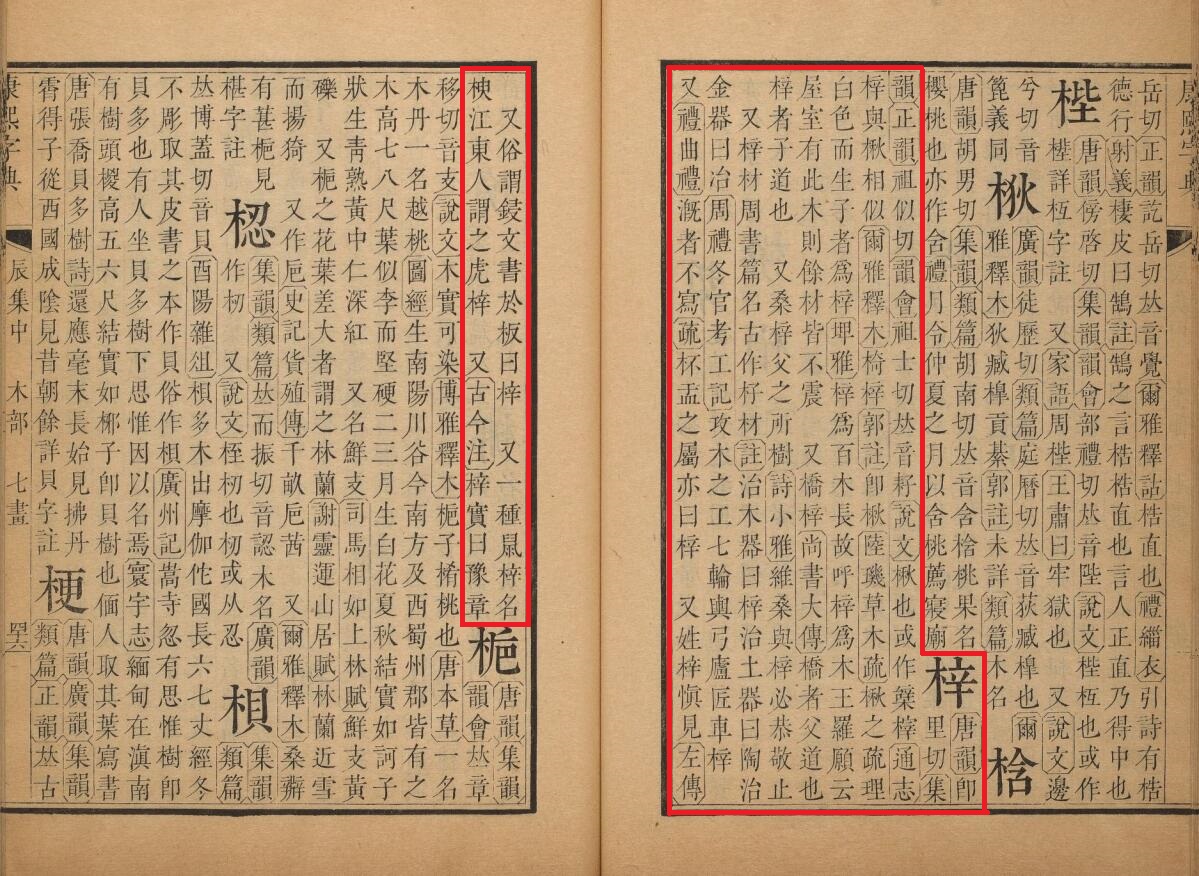 岳切正韻訖岳切𠀤音覺爾雅釋詁梏直也禮緇衣引詩有梏
德行射義棲皮曰鵠註鵠之言梏梏直也言人正直乃得中也
梐
唐韻傍啓切集韻韻會部禮切𠀤音陛說文梐枑也或作
梐詳枑字註 又家語周梐王肅曰牢獄也 又說文邊
兮切音
箆義同
梑
廣韻徒歷切類篇庭曆切𠀤音荻臧槹也爾
雅釋木狄臧槹貢綦郭註未詳類篇木名
梒
唐韻胡男切集韻類篇胡南切𠀤音含梒桃果名
櫻桃也亦作含禮月令仲夏之月以含桃薦寢廟
梓
唐韻卽
里切集
韻正韻祖似切韻會祖士切𠀤音耔說文楸也或作榟通志
梓與楸相似爾雅釋木椅梓郭註卽楸陸璣草木疏楸之疏理
白色而生子者爲梓埤雅梓爲百木長故呼梓爲木王羅願云
屋室有此木則餘材皆不震 又橋梓尚書大傳橋者父道也
梓者子道也 又桑梓父之所樹詩小雅維桑與梓必恭敬止
又梓材周書篇名古作杍材註治木器曰梓治土器曰陶治
金器曰冶周禮冬官考工記攻木之工七輪輿弓廬匠車梓
又禮曲禮漑者不寫疏杯盂之屬亦曰梓 又姓梓愼見左傳
又俗謂鋟文書於板曰梓 又一種鼠梓名
楰江東人謂之虎梓 又古今注梓實曰豫章
梔
唐韻集韻
韻會𠀤章
移切音支說文木實可染博雅釋木梔子㮋桃也唐本草一名
木丹一名越桃圖經生南陽川谷今南方及西蜀州郡皆有之
木高七八尺葉似李而堅硬二三月生白花夏秋結實如訶子
狀生靑熟黃中仁深紅 又名鮮支司馬相如上林賦鮮支黃
礫 又梔之花葉差大者謂之林蘭謝靈運山居賦林蘭近雪
而揚猗 又作巵史記貨殖傳千畝巵茜 又爾雅釋木桑辦
有葚梔見
椹字註
梕
集韻類篇𠀤而振切音認木名廣韻
作杒 又說文桎杒也杒或从忍
梖
集韻
類篇
𠀤博蓋切音貝酉陽雜俎梖多木出摩伽佗國長六七丈經冬
不彫取其皮書之本作貝俗作梖廣州記嵩寺忽有思惟樹卽
貝多也有人坐貝多樹下思惟因以名焉寰宇志緬甸在滇南
有樹頭椶高五六尺結實如椰子卽貝樹也緬人取其葉寫書
唐張喬貝多樹詩還應毫末長始見拂丹
霄得子從西國成陰見昔朝餘詳貝字註
梗
唐韻廣韻集韻
類篇正韻𠀤古
康熙字典 辰集中 木部 七畫